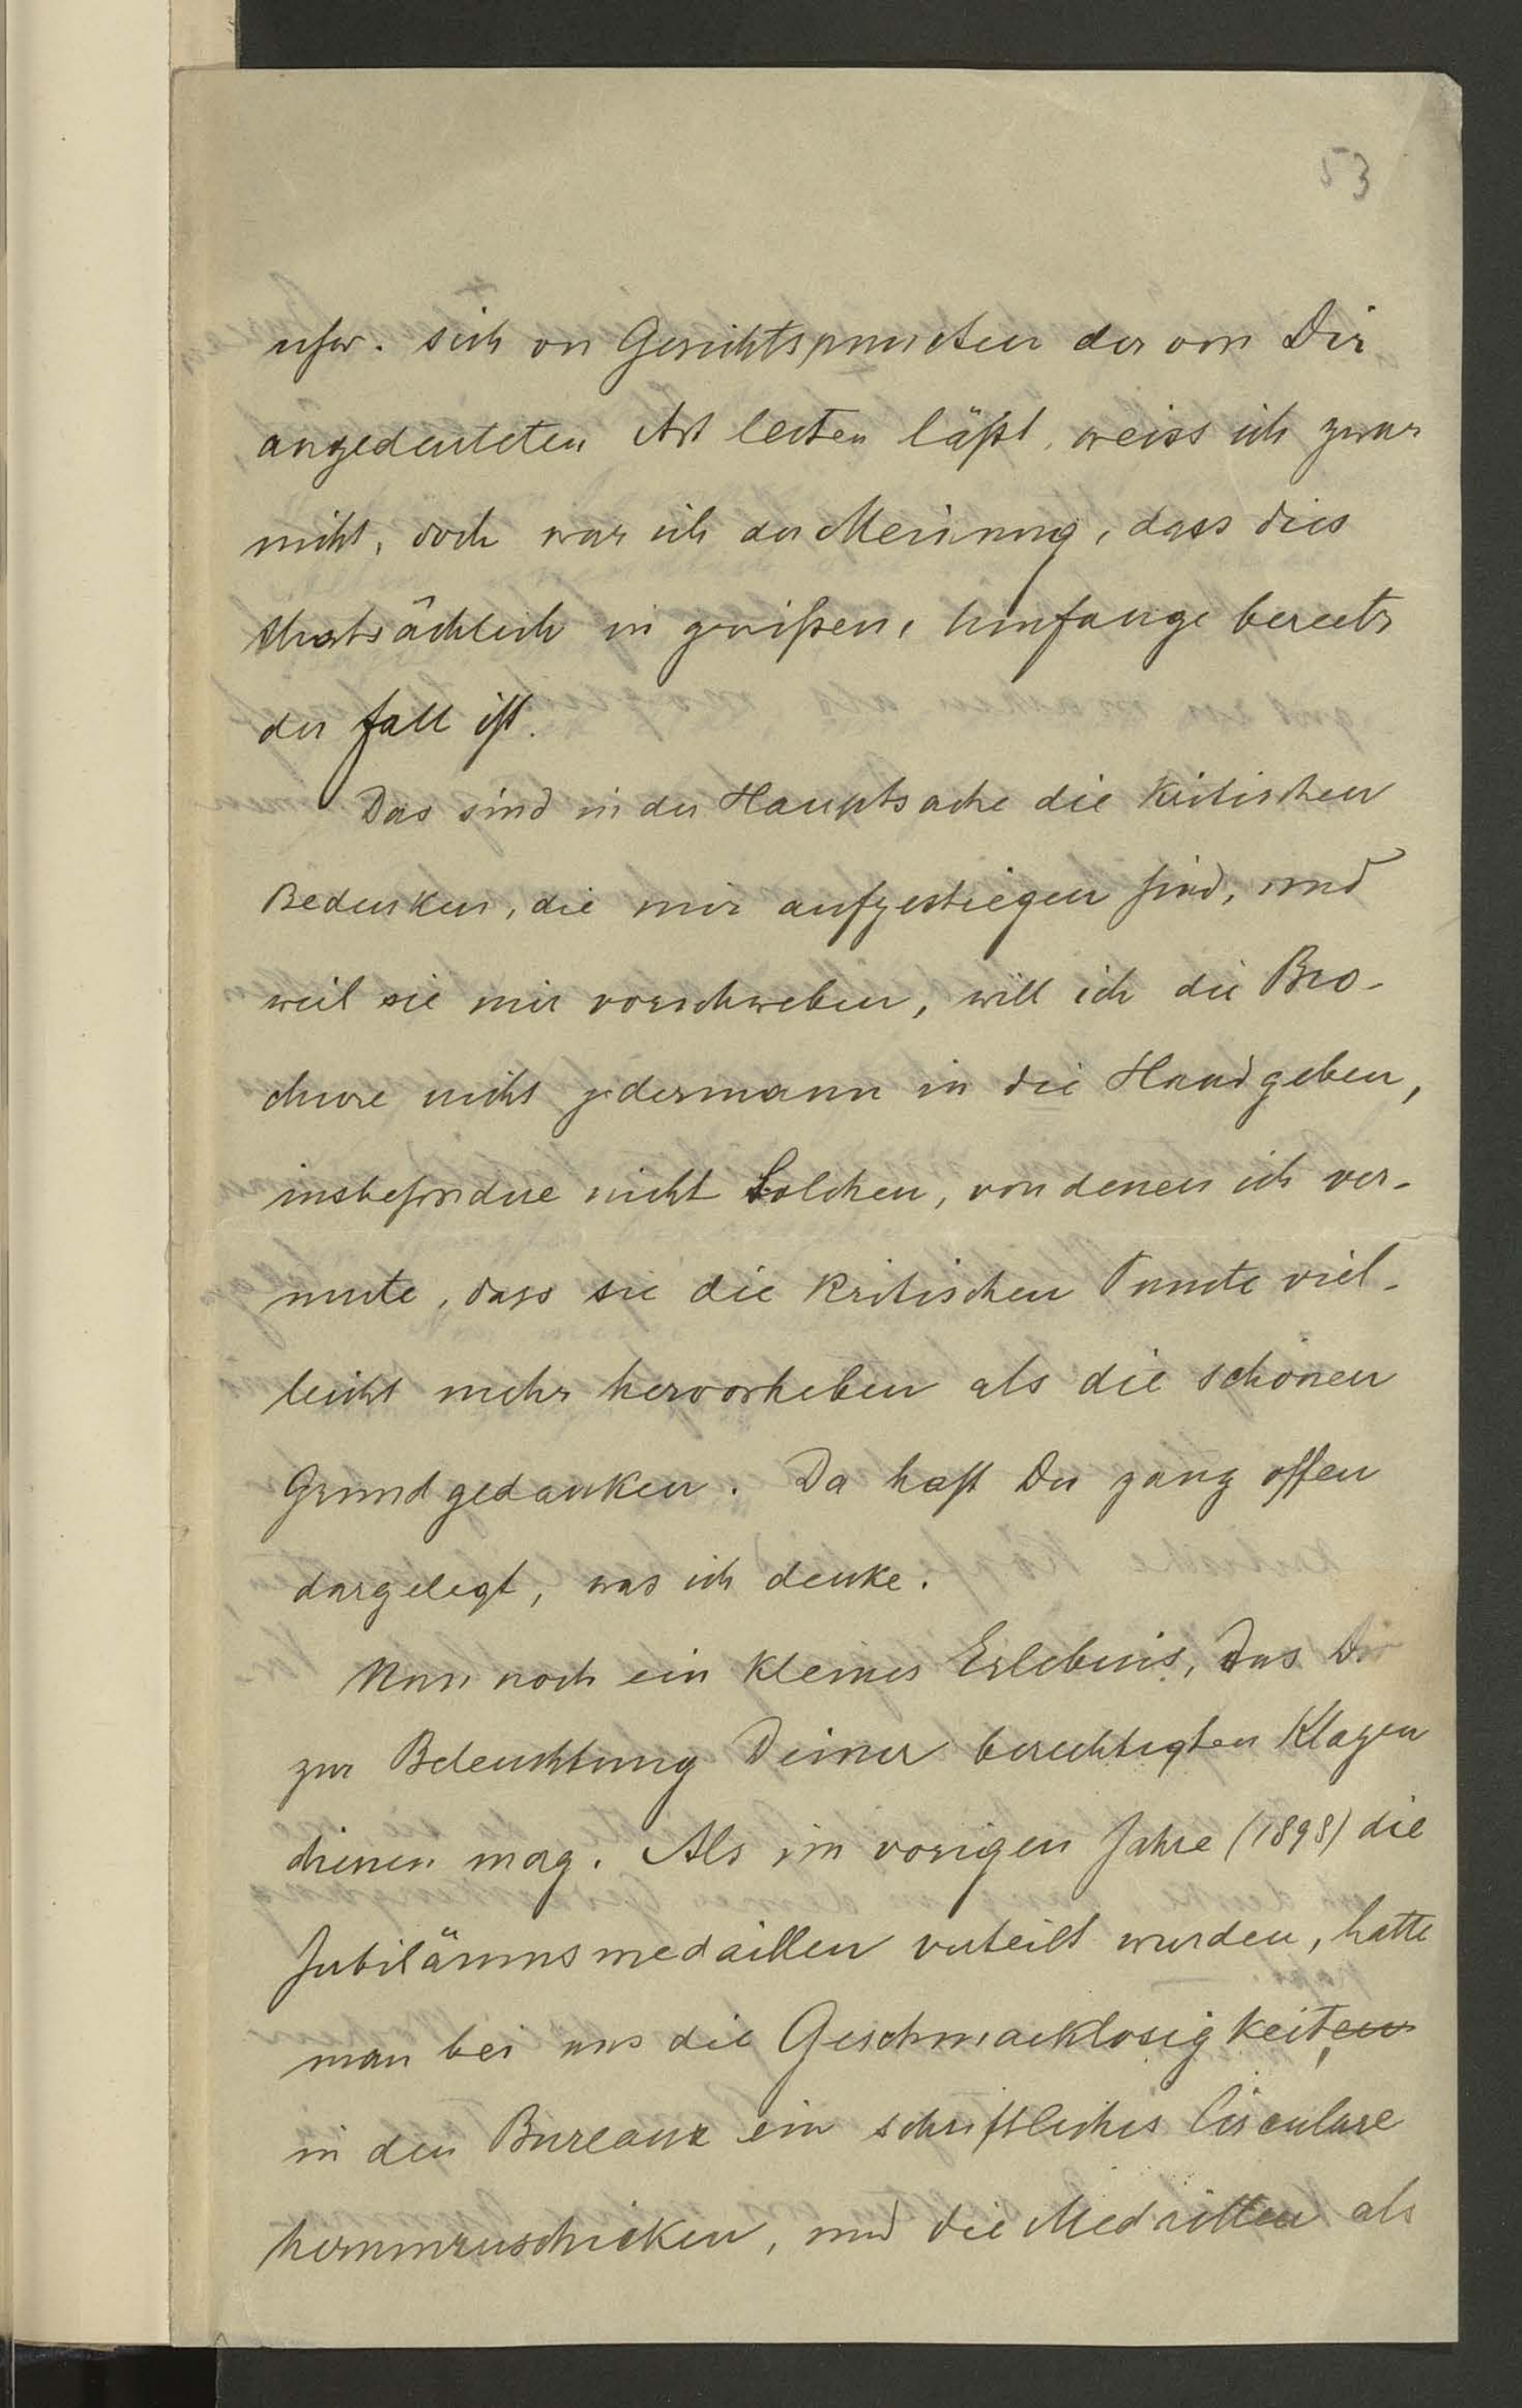 53
usw. sich von Gesichtspuncten der von Dir
angedeuteten Art leiten läßt, weiss ich zwar
nicht, doch war ich der Meinung, dass dies
thatsächlich in gewißem Umfange bereits
der Fall ist.
Das sind in der Hauptsache die kritischen
Bedenken, die mir aufgestiegen sind, und
weil sie mir vorschweben, will ich die Bro-
chure nicht jedermann in die Hand geben,
insbesondere nicht Solchen, von denen ich ver-
mute, dass sie die kritischen Puncte viel-
leicht mehr hervorheben als die schönen
Grundgedanken. Da hast Du ganz offen
dargelegt, was ich denke.
Nun noch ein kleines Erlebnis, das Dir
zur Beleuchtung Deiner berechtigten Klagen
dienen mag. Als im vorigen Jahre (1898) die
Jubiläumsmedaillen verteilt wurden, hatte
man bei uns die Geschmacklosigkeiten,
in den Bureaux ein schriftliches Circulare
herumzuschicken, und die Medaillen als